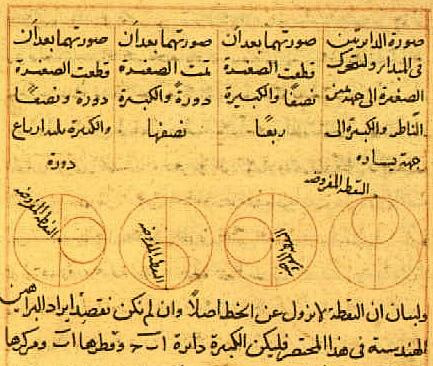 صورة الدائرتين
فى المبدا ولتتحرك
الصغيرة الى جهة يمين
الناظر والكبيرة الى
جهة يساره
صورتهما بعد ان
قطعت الصغيرة
نصفا والكبيرة
ربعا
صورتهما بعد ان
تمت الصغيرة
دورة والكبيرة
نصفها
صورتهما بعد ان
قطعت الصغيرة
دورة ونصفا
والكبيرة ثلثة ارباع
دورة
النقطة المفروضة
النقطة المفروضة
النقطة المفروضة
النقطة المفروضة
ولبيان ان النقطة لا تزول عن الخط اصلا وان لم تكن نقصد ايراد البراهين
الهندسية فى هذا المختصر فليكن الكبيرة دائرة اب وقطرها اب ومركزها